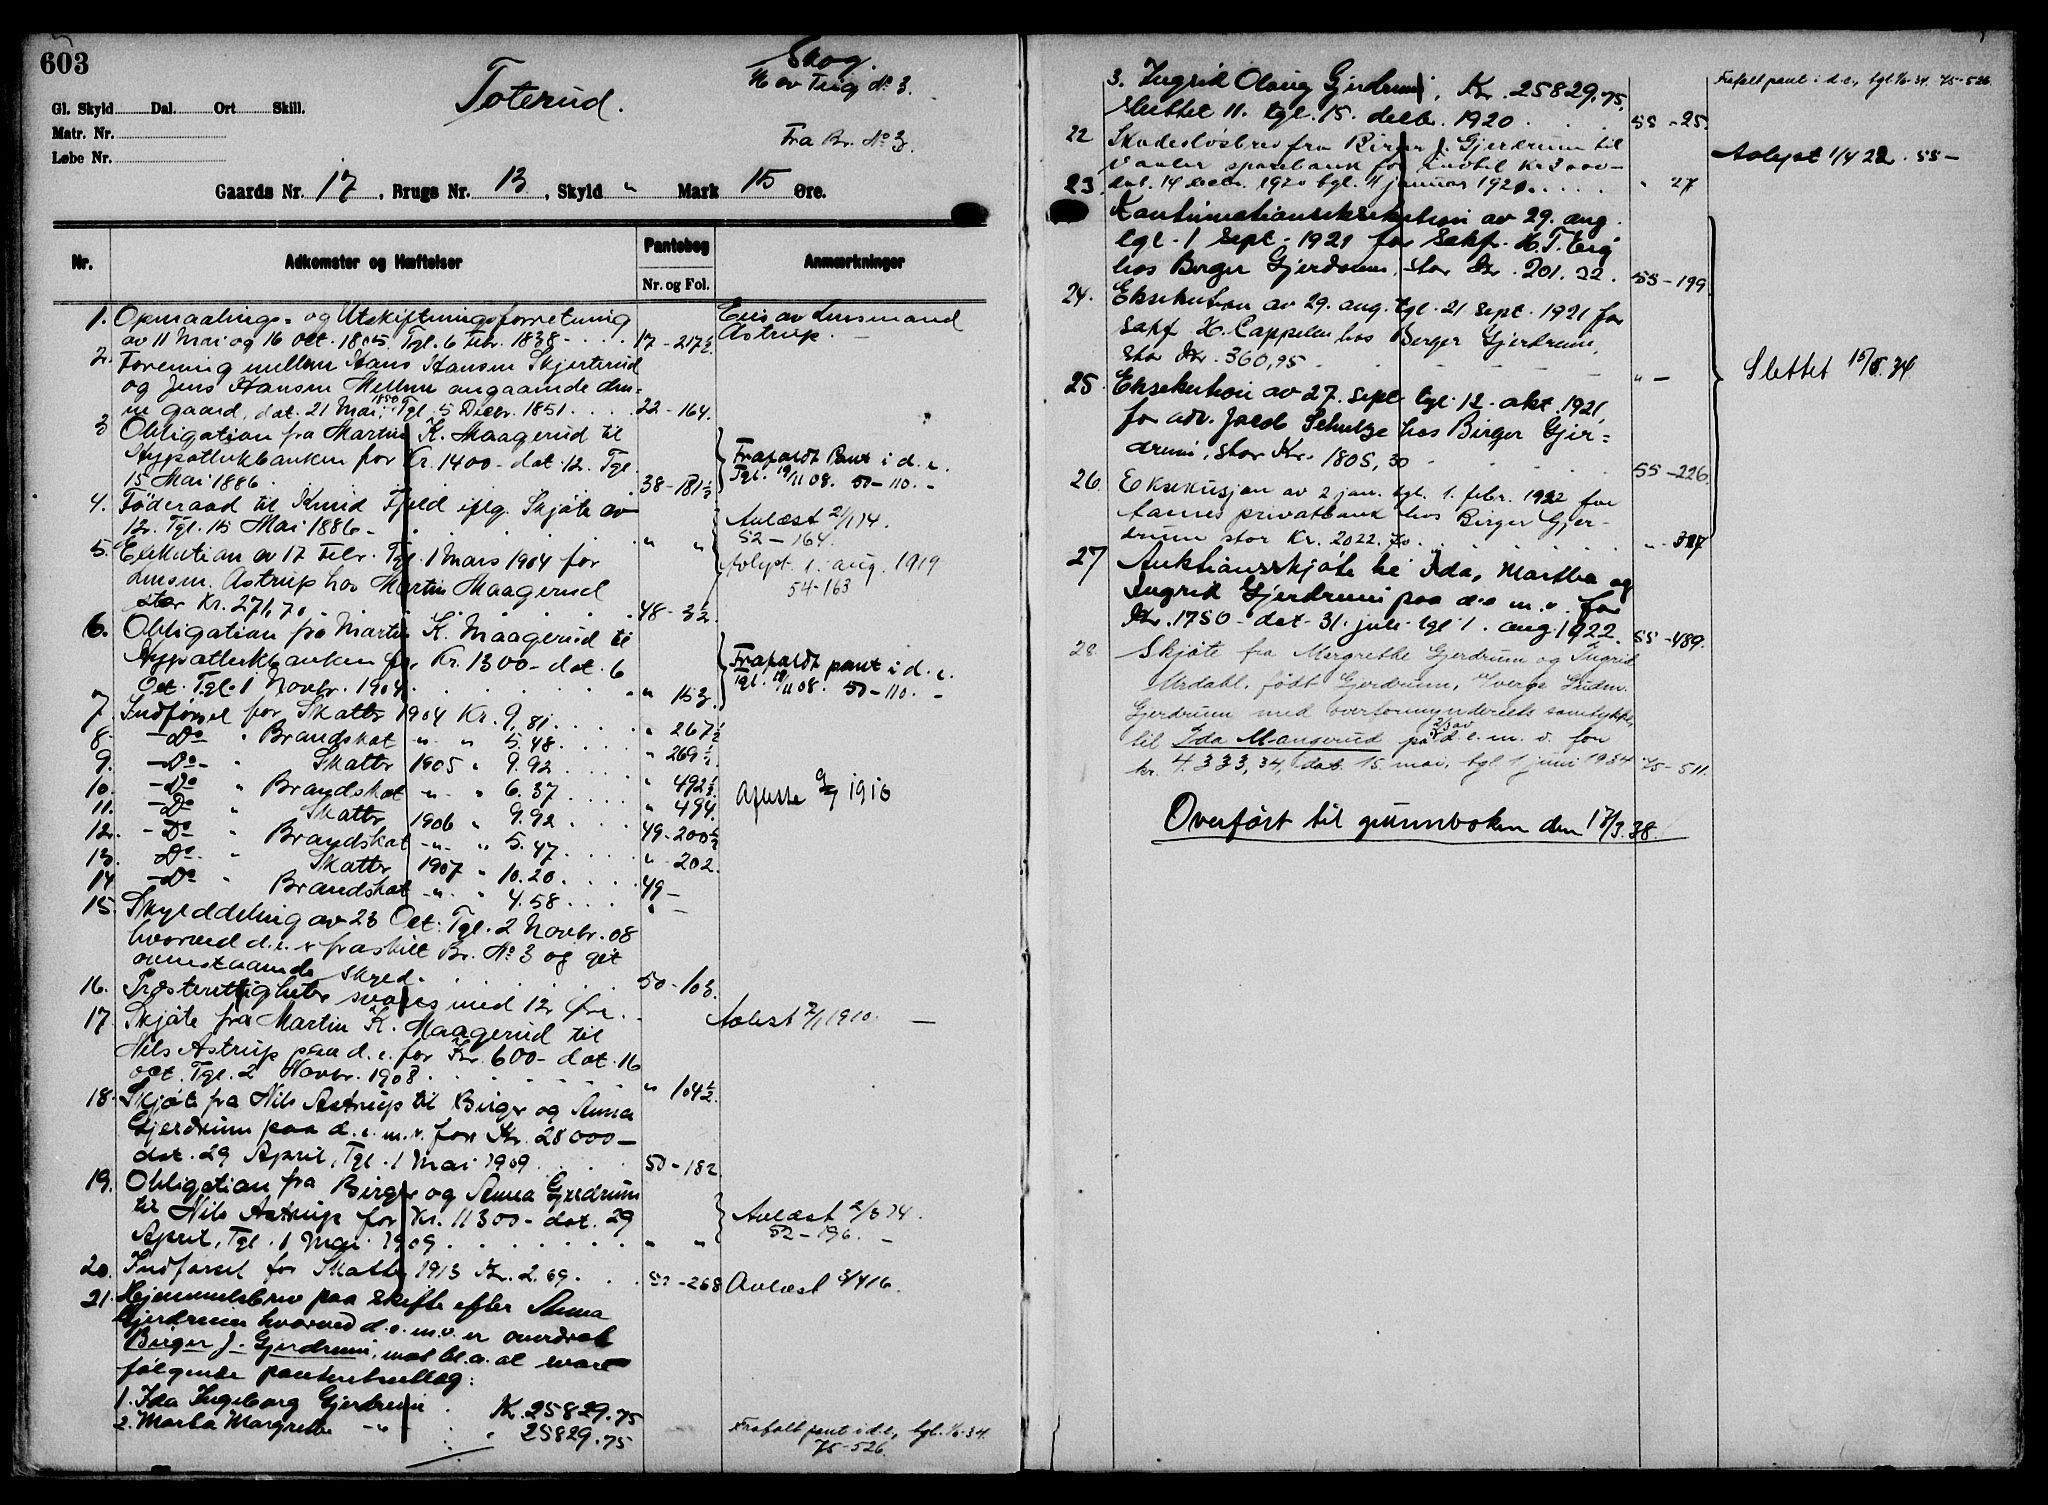 603
Toterud.
Skog.
N av Teig No 3.
Fra Br. No 3.
Gl. Skyld Dal. Ort Skill.
Matr. Nr.
Løbe Nr.
Gaards Nr. 17, Brugs Nr. 13, Skyld " Mark 15 Øre.
Nr. Adkomster og Hæftelser Pantebog Anmærkninger
Nr. og Fol.
1. Opmaalings- og Utskiftningsforretning
av 11 Mai og 16 Oct. 1805, Tgl. 6 Febr. 1838 17-217½ Eies av Lensmand
Astrup.
2. Forening mellem Hans Hansen Skjerterud
og Jens Hansen Mellem angaaende den-
ne gaard, dat. 21 Mai 1850, Tgl. 5 Decbr. 1851. 22-164.
3 Obligation fra Martin K. Maagerud til
Hypothekbanken for Kr. 1400- dat. 12. Tgl.
15 Mai 1886. 38-181½ Frafaldt Pant i d. e.
Tgl. 19/11 08. 50-110.-
4. Föderaad til Knud Fjeld iflg. Skjöte av
12. Tgl. 15 Mai 1886- " " Avlæst 2/1 14.
52-164.
5. Exekution av 17 Febr. Tgl. 1 Mars 1904 for
Lensm. Astrup hos Martin Maagerud
stor Kr. 271,70. 48-32 Avlyst 1. aug. 1919
54-163
6. Obligation fra Martin K. Maagerud til
Hypothekbanken for Kr. 1300- dat. 6
Oct. Tgl. 1 Novbr. 1904. " 153. Frafaldt pant i d. e.
Tgl. 19/11 08. 50-110.-
7. Indförsel for Skatter 1904 Kr. 9,81. " 267½
8. -Do- " Brandskat -"- " 5.48. " 269½
9. -Do- " Skatter 1905 " 9.92 " 492½
10. -Do- " Brandskat -"- " 6.37. " 494.
11. -Do- " Skatter 1906 " 9.92 49-200½
12. -Do- " Brandskat -"- " 5.47. " 202.
13. -Do- " Skatter 1907 " 10.20. 49-
14. -Do- " Brandskat -"- " 4.58. " -
1910
15. Skylddeling av 23 Oct. Tgl. 2 Novbr. 08
hvorved d. e. er fraskilt Br. No 3 og git
ovenstaaende skyld. 50-103.
16. Præsterettigheter svares med 12 Øre.
17. Skjöte fra Martin K. Maagerud til
Nils Astrup paa d. e. for Kr. 600- dat. 16
Oct. Tgl. 2 Novbr. 1908. " 104½
Avlæst 1910.
18. Skjöte fra Nils Astrup til Birger og Anna
Gjerdrum paa d. e. m. v. for Kr. 28000-
dat. 29 April, Tgl. 1 Mai 1909. 50-182
19. Obligation fra Birger og Anna Gjerdrum
til Nils Astrup for Kr. 11300- dat. 29
April, Tgl. 1 Mai 1909. " " Avlæst 2/3 14.
52-196.-
20. Indförsel for Skatter 1913 Kr. 2.69. 52-268 Avlæst 3/4 16.
21. Hjemmelsbrev paa skifte efter Anna
Gjerdrum hvorved d. e. m. v. er overdrat
Birger J. Gjerdrum, mot bl. a. at svare
følgende pantutlæg:
1. Ida Ingeborg Gjerdrum Kr. 25829.75
2. Marta Margrethe -"- " 25829.75
Frafalt pant i d.e., tgl. 1/6-34.
75-526.
3. Ingrid Olaug Gjerdrum, Kr. 25829.75,
sluttet 11. tgl. 15. decbr. 1920. 55-25. Frafalt pant i d.e., tgl. 1/6-34. 75-526.
22 Skadesløsbrev fra Birger J. Gjerdrum til
Vaaler sparebank for indtil Kr 3000-
dat. 14 decbr. 1920 tgl. 4 januar 1921. " 27 Avlyst 1/4 22. 55-
23. Kontinuationseksekution av 29. aug.
tgl. 1 sept. 1921 for Sakf. H. T. Teig
hos Birger Gjerdrum, stor Kr. 201.22. 55-199
24. Eksekution av 29. aug. tgl. 21 sept. 1921 for
Sakf H. Cappelen hos Birger Gjerdrum,
stor Kr. 360,95 " -
25. Eksekution av 27. sept tgl. 12. okt. 1921,
for adv. Jacob Schulze hos Birger Gjer-
drum, stor Kr. 1805,30 55-226.
26. Eksekusjon av 2 jan. tgl. 1. febr. 1922 for
privatbank hos Birger Gjer-
drum stor Kr. 2022.70. " 317
Slettet 15/5 34
27 Auktionsskjöte til Ida, Martha og
Ingrid Gjerdrum paa d.e m.v. for
Kr. 1750- dat- 31. juli tgl 1. aug. 1922. 55-489.
28. Skjöte fra Margrethe Gjerdrum og Ingrid
Urdahl, født Gjerdrum, v/verge Gudm.
Gjerdrum med overformynderiets samtykke,
til Ida Mangerud på 2/3 av d. e. m. v. for
kr. 4.333,34, dat. 15. mai, tgl. 1 juni 1934 75-511.
Overført til grunnboken den 17/3.38.